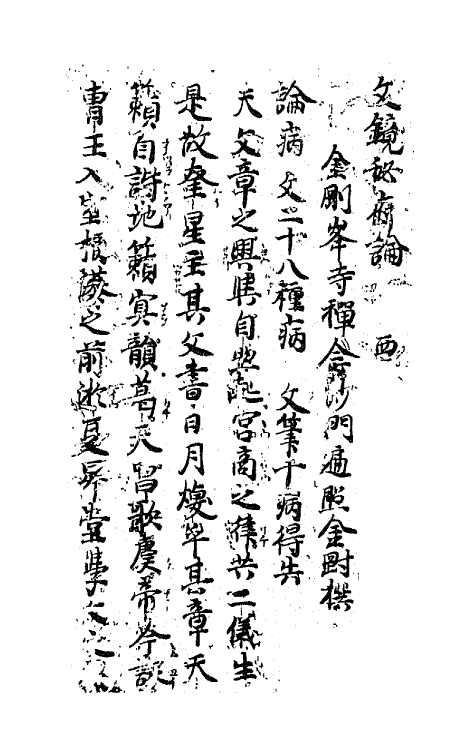 文鏡秘府論　西
金剛峯寺禪念沙門遍照金剛撰
論病　文二十八種病　文筆十病得失
夫文章之興與自然起宮商之律共二儀生
是故奎星主其文書日月煥乎其章天
籟自諧地籟冥韻葛天唱歌虞帝吟詠
曹王入室摛藻之前游夏昇堂學文之